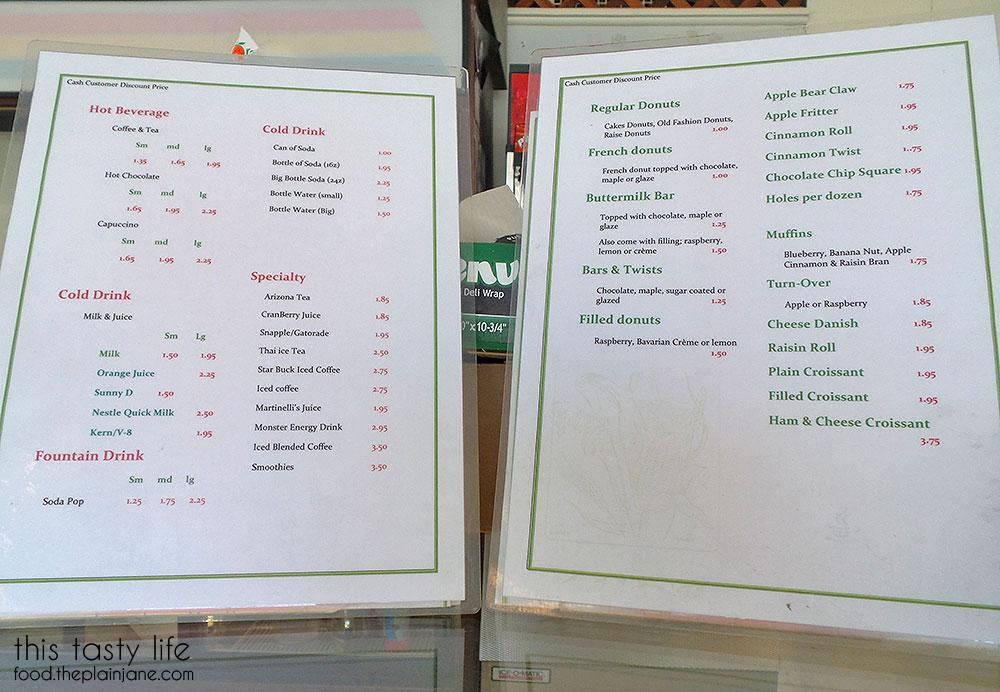 Cash Customer Discount Price
Hot Beverage
Coffee & Tea
Sm md lg
1.35 1.65 1.95
Hot Chocolate
Sm md lg
1.65 1.95 2.25
Capuccino
Sm md lg
1.65 1.95 2.25
Cold Drink
Milk & Juice
Sm Lg
Milk 1.50 1.95
Orange Juice 2.25
Sunny D 1.50
Nestle Quick Milk 2.50
Kern/V-8 1.95
Fountain Drink
Sm md lg
Soda Pop 1.25 1.75 2.25
Cold Drink
Can of Soda 1.00
Bottle of Soda (16z) 1.95
Big Bottle Soda (24z) 2.25
Bottle Water (small) 1.25
Bottle Water (Big) 1.50
Specialty
Arizona Tea 1.85
CranBerry Juice 1.85
Snapple/Gatorade 1.95
Thai ice Tea 2.50
Star Buck Iced Coffee 2.75
Iced coffee 2.75
Martinelli's Juice 1.95
Monster Energy Drink 2.95
Iced Blended Coffee 3.50
Smoothies 3.50
Deli Wrap
x 10-3/4"
Cash Customer Discount Price
Regular Donuts
Cakes Donuts, Old Fashion Donuts,
Raise Donuts 1.00
French donuts
French donut topped with chocolate,
maple or glaze 1.00
Buttermilk Bar
Topped with chocolate, maple or
glaze 1.25
Also come with filling; raspberry,
lemon or crème 1.50
Bars & Twists
Chocolate, maple, sugar coated or
glazed 1.25
Filled donuts
Raspberry, Bavarian Crème or lemon
1.50
Apple Bear Claw 1.75
Apple Fritter 1.95
Cinnamon Roll 1.95
Cinnamon Twist 1..75
Chocolate Chip Square 1.95
Holes per dozen 1.75
Muffins
Blueberry, Banana Nut, Apple
Cinnamon & Raisin Bran 1.75
Turn-Over
Apple or Raspberry 1.85
Cheese Danish 1.85
Raisin Roll 1.95
Plain Croissant 1.95
Filled Croissant 1.95
Ham & Cheese Croissant
3.75
ICE-O-MATIC
this tasty life
food.theplainjane.com